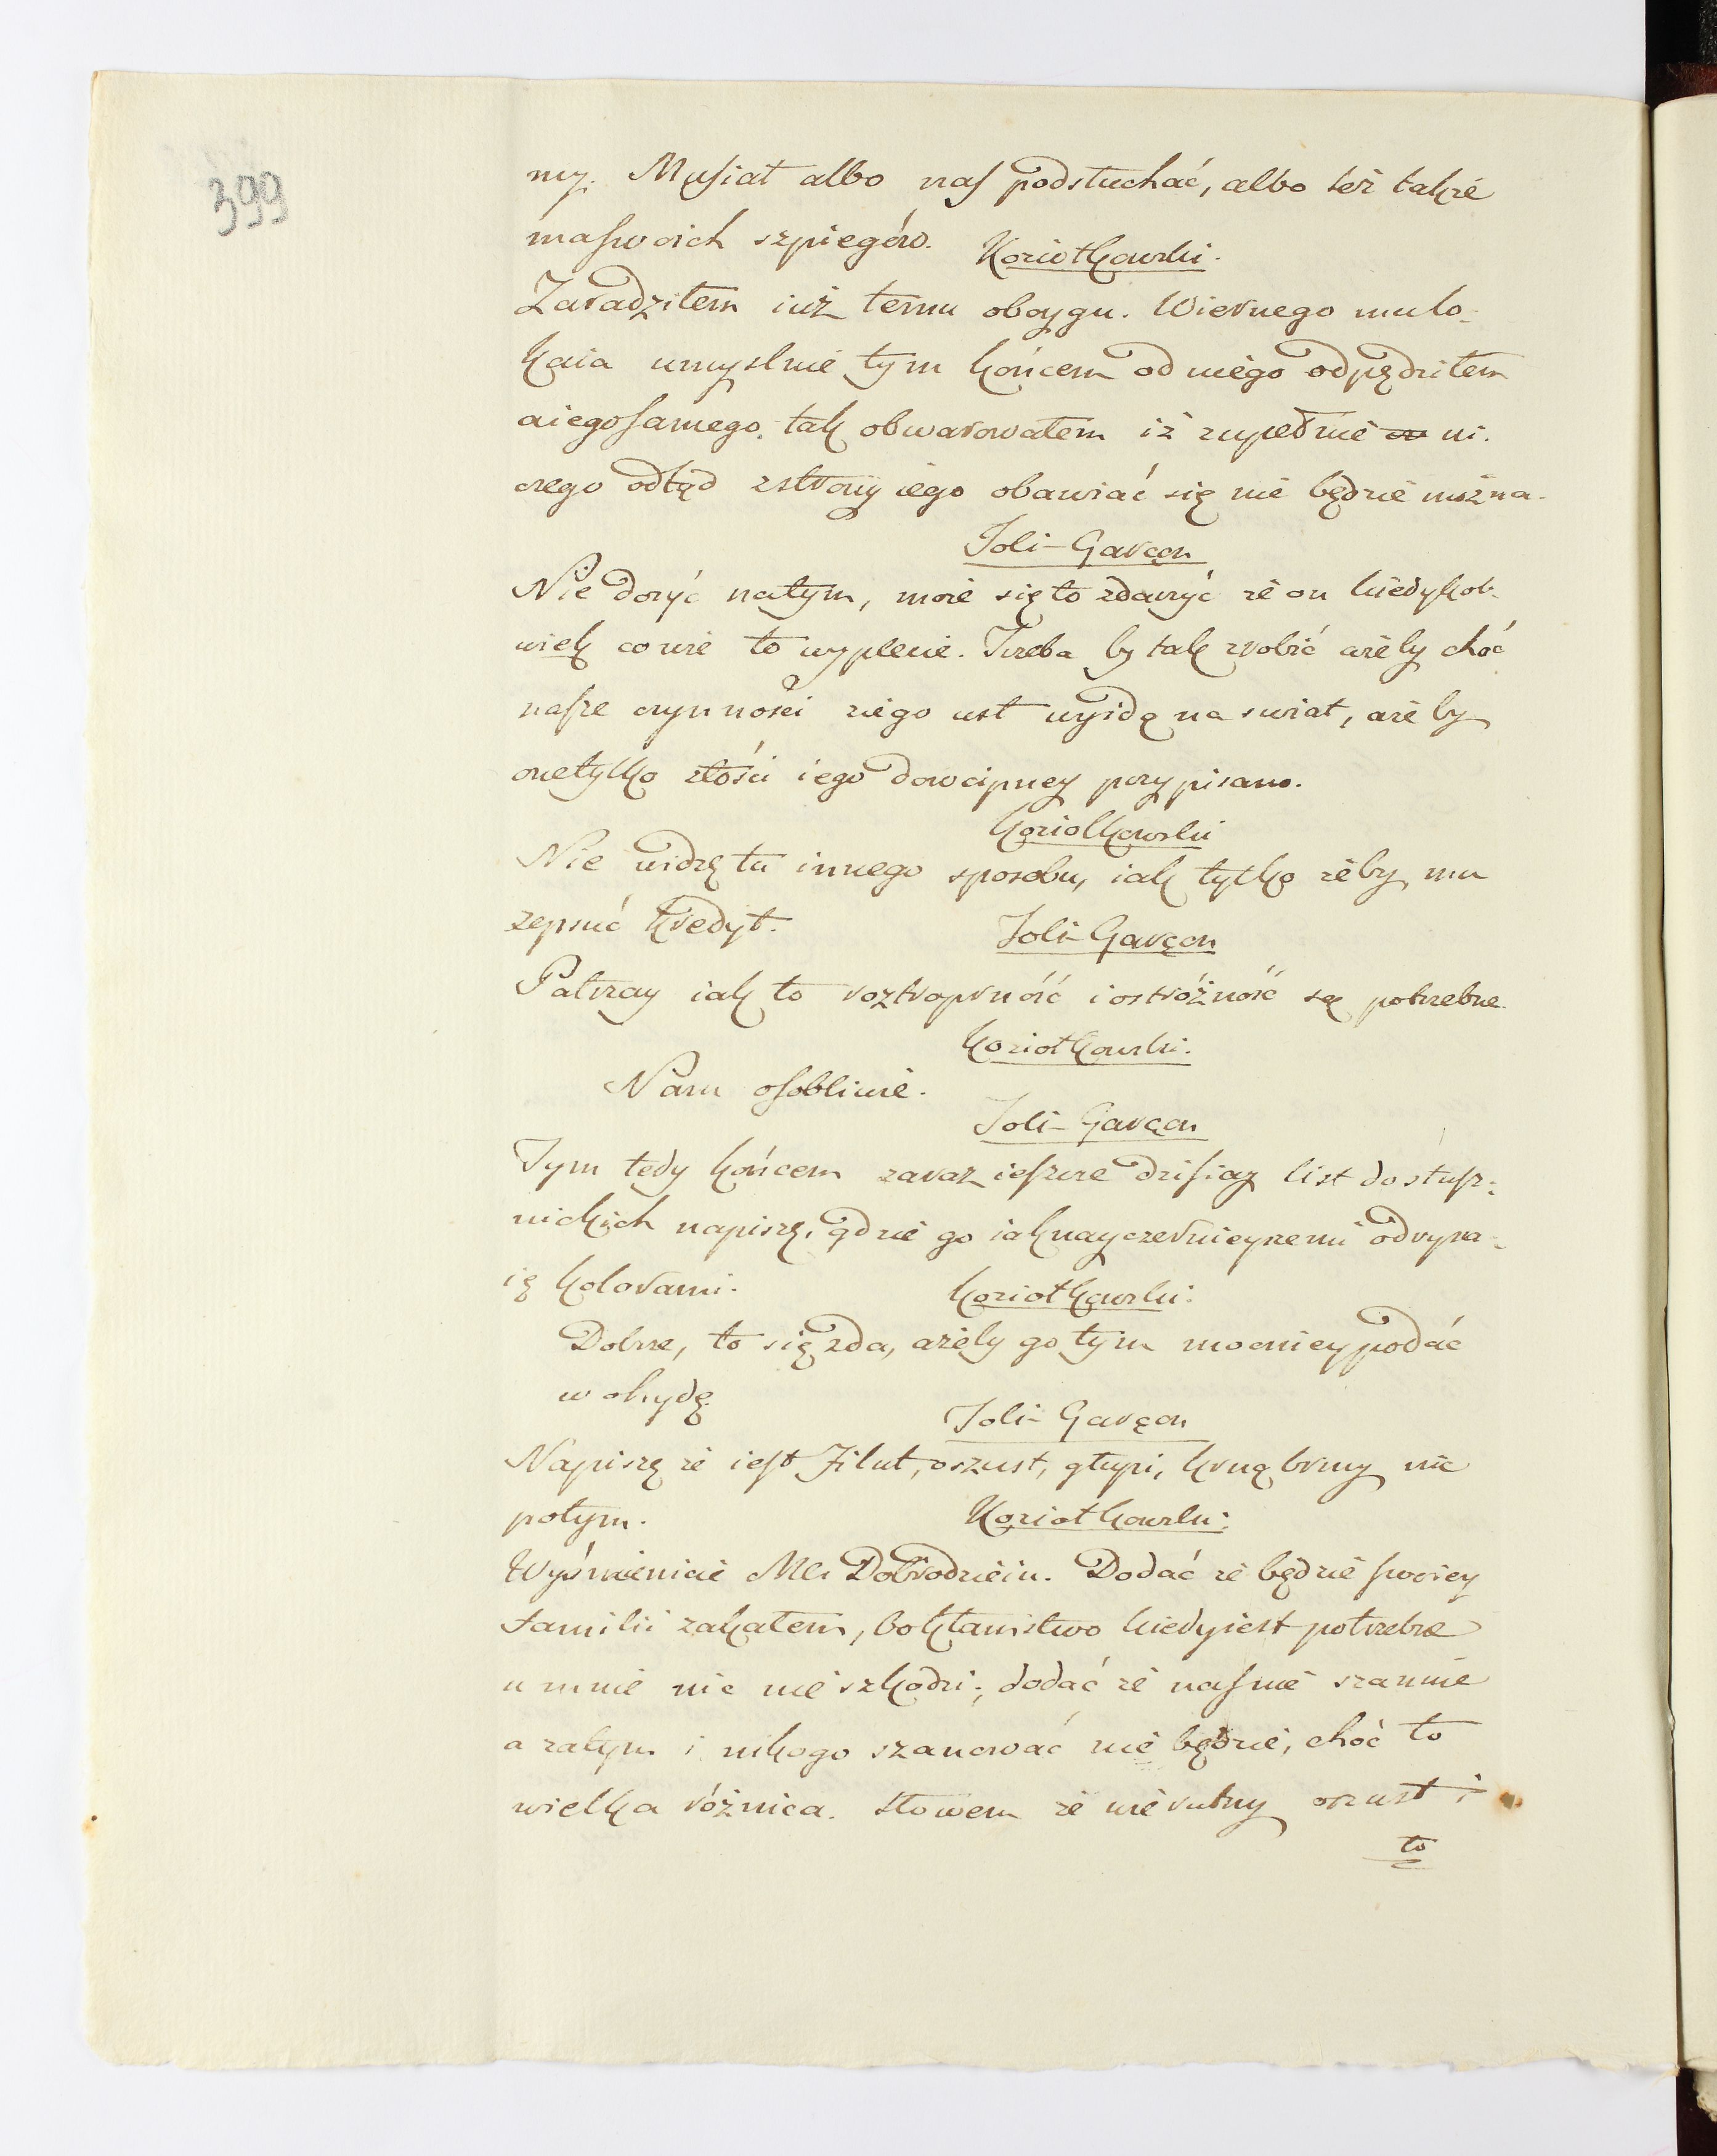 399
my. Musiał albo nas podsłuchać, albo też także
maswoich szpiegów.
Koziołkowski.
Zaradziłem iuż temu oboygu. Wiernego mu lo-
kaia umyslnie tym końcem od niego odpędziłem
aiegosamego tak obwarowałem iż zupełnie ni-
czego odtąd zstrony iego obawiać się nie będzie można.
Joli-Garçon
Nie dosyć natym, może się to zdarzyć że on kiedykol-
wiek co wie to wyplecie. Trzeba by tak zrobić ażeby choć
nasze czynności ziego ust wyidą na swiat, ażeby
onetylko złości iego dowcipney przypisano.
Koziolkowski
Nie widzę tu innego sposobu, iak tylko żeby mu
zepsuć kredyt.
Joli-Garçon
Patrzay iak to roztropność i ostróżność są potrzebne.
Koziołkowski.
Nam osobliwie.
Joli-Garçon
Tym tedy końcem zaraz ieszcze dzisiay list do słusz-
nickich napiszę, gdzie go iaknayczernieyszemi odrysu-
ią kolorami.
Koziołkowski.
Dobrze, to się zda, ażeby go tym mocniey podać
w ohydę.
Joli-Garçon
Napiszę że iest Filut, oszust, głupi, krnąbrny nic
potym.
Koziołkowski.
Wyśmienicie Mci Dobrodzieiu. Dodać że będzie swoiey
familii zakałem, bo kłamstwo kiedy iest potrzebne
u mnie nic nie szkodzi; dodać że nas nie szanuie
a zatym i nikogo szanować nie będzie, choć to
wielka różnica. Słowem że wierutny oszust i
to